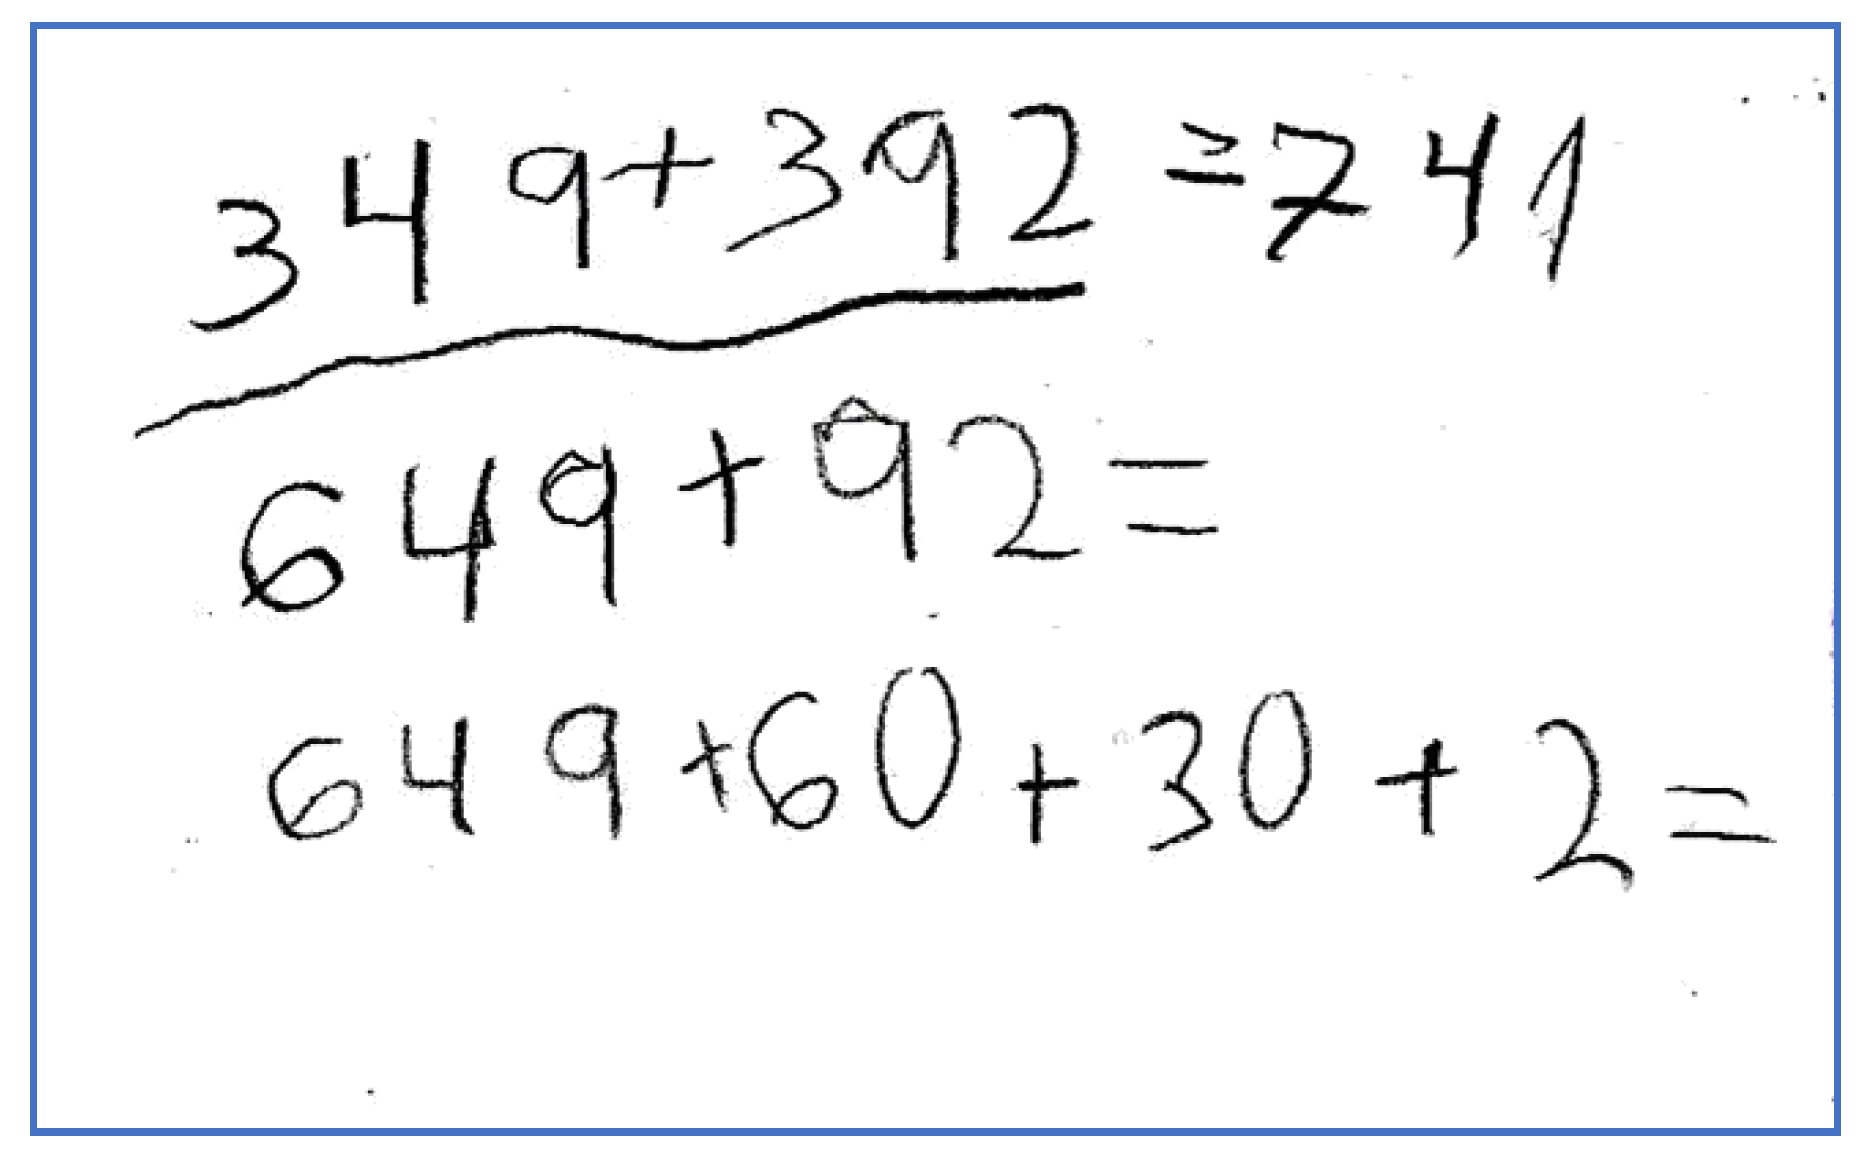 349+392=741
649+92=
649+60+30+2=